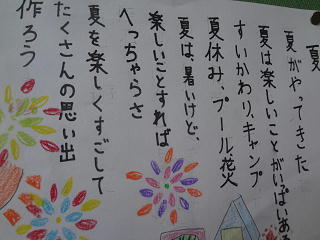 夏
夏がやってきた
夏は楽しいことがいぱいあ
すいかわり、キャンプ
夏休み、プール花火
夏は、暑いけど、
楽しいことすれば
へっちゃらさ
夏を楽しくすごして
たくさんの思い出
作ろう